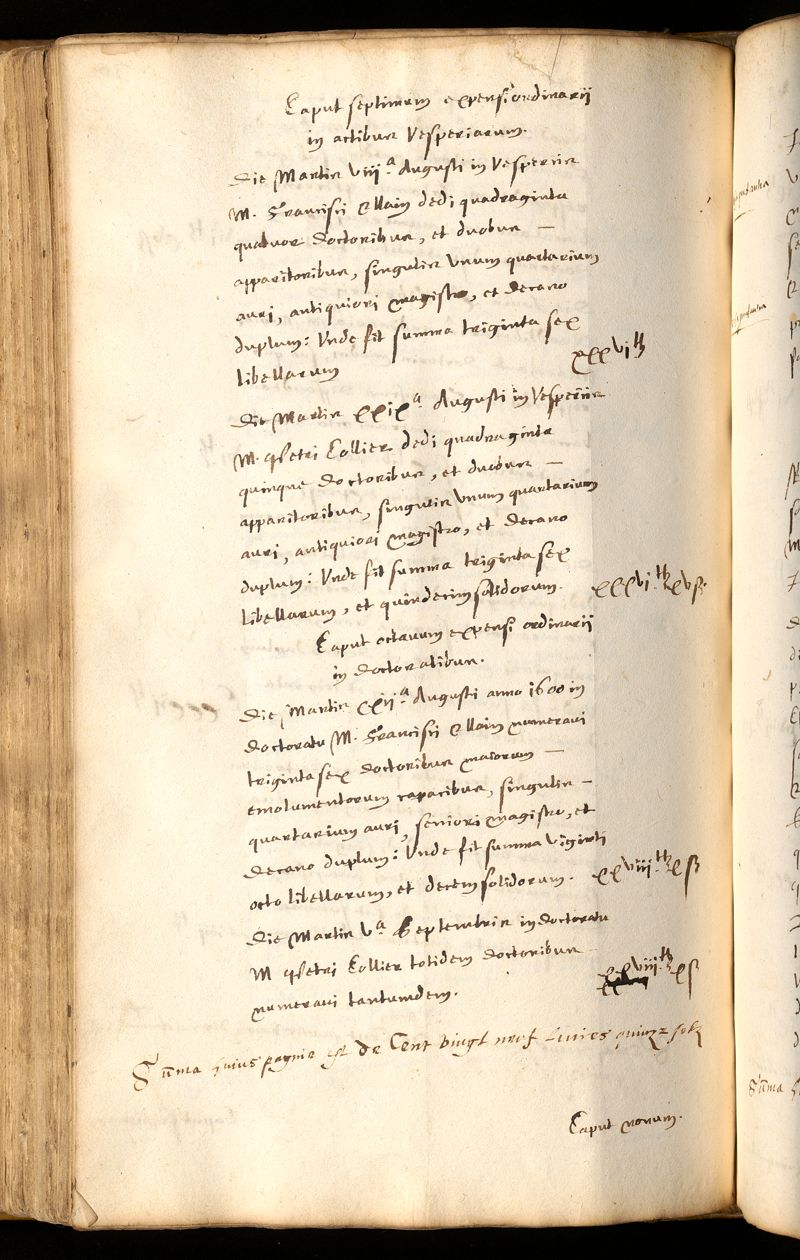 Caput septimum expensi ordinarii
in actibus Vesperiarum.
Die Martis viii.ª Augusti in Vesperiis
M. Francisci Ellain dedi quadraginta
quatuor doctoribus, et duobus —
apparitoribus, singulis unum quartarium
auri, antiquiori magistro, et decano
duplum: Unde fit summa triginta sex
libellarum
xxxvi ℔
Die Martis xxixª Augusti in Vesperiis
M. Petri Collier dedi quadraginta
quinque doctoribus, et duobus —
apparitoribus, singulis unum quartarium
auri, antiquiori magistro, et decano
duplum: Unde fit summa triginta sex
libellarum, et quindecim solidorum.
xxxvi.℔ xv ß.
Caput octavum expensi ordinarii
in doctoratibus.
Die Martis xxiiª Augusti anno 1600 in
doctoratu M. Francisci Ellain numeravi
triginta sex doctoribus maiorum —
emolumentorum capacibus, singulis —
quartarium auri, seniori magistro, et
decano duplum: Unde fit summa viginti
octo libellarum, et decem solidorum.
xxviii.℔ x ß
Die Martis vª Septembris in doctoratu
M Petri Collier totidem doctoribus
numeravi tantumdem.
xxviii.℔ x ß
Sūma huius paginæ est de Cent vingt neuf Livres quinze solz
Caput nonum.
Sūma